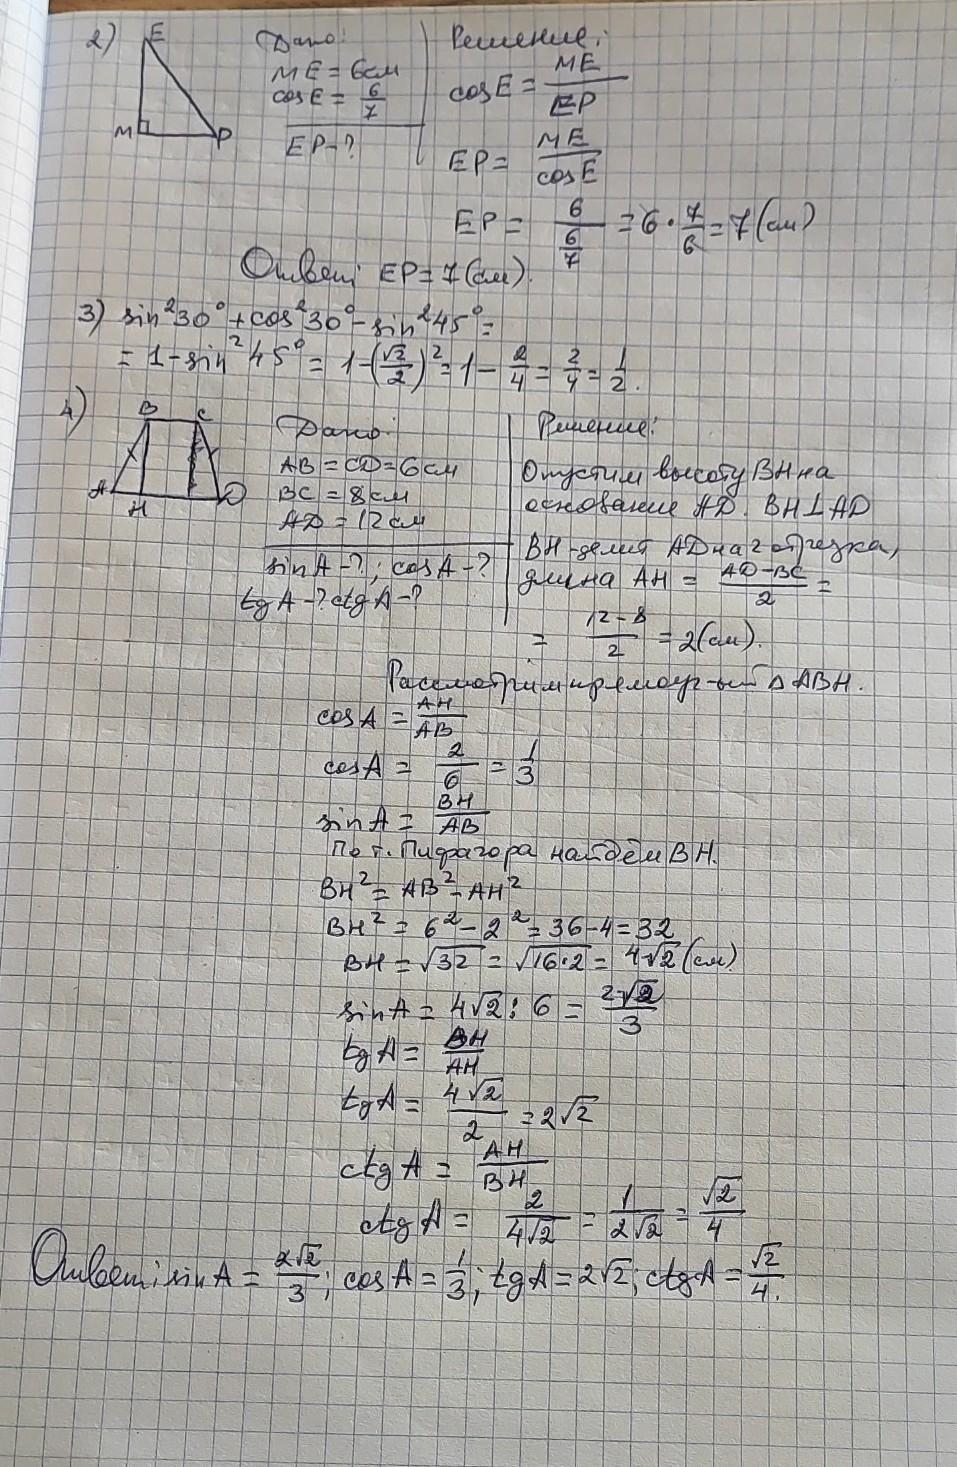 2)
E
M
P
Дано:
ME = 6см
cosE = 6/7
EP - ?
Решение:
cosE = ME/EP
EP = ME/cosE
EP = 6/(6/7) = 6 · 7/6 = 7 (см)
Ответ: EP = 7 (см).
3) sin²30° + cos²30° - sin²45° =
= 1 - sin²45° = 1 - (√2/2)² = 1 - 2/4 = 2/4 = 1/2.
4)
B C
A H D
Дано:
AB = CD = 6см
BC = 8см
AD = 12см
sinA - ?; cosA - ?
tgA - ? ctgA - ?
Решение:
Опустим высоту BH на
основание AD. BH⊥AD
BH - делит AD на 2 отрезка,
длина AH = (AD - BC)/2 =
= (12 - 8)/2 = 2 (см).
Рассмотрим прямоуг-ый Δ ABH.
cosA = AH/AB
cosA = 2/6 = 1/3
sinA = BH/AB
По т. Пифагора найдём BH.
BH² = AB² - AH²
BH² = 6² - 2² = 36 - 4 = 32
BH = √32 = √16·2 = 4√2 (см)
sinA = 4√2 : 6 = 2√2/3
tgA = BH/AH
tgA = 4√2/2 = 2√2
ctgA = AH/BH
ctgA = 2/4√2 = 1/2√2 = √2/4
Ответ: sinA = 2√2/3; cosA = 1/3; tgA = 2√2; ctgA = √2/4.